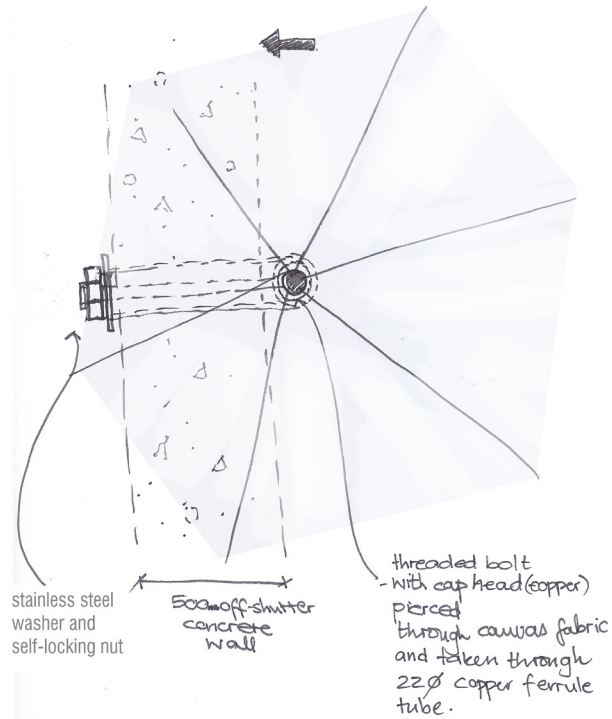 stainless steel
washer and
self-locking nut
500mm off-shutter
concrete
wall
threaded bolt
- with cap head (copper)
pierced
through canvas fabric
and taken through
22Ø copper ferrule
tube.